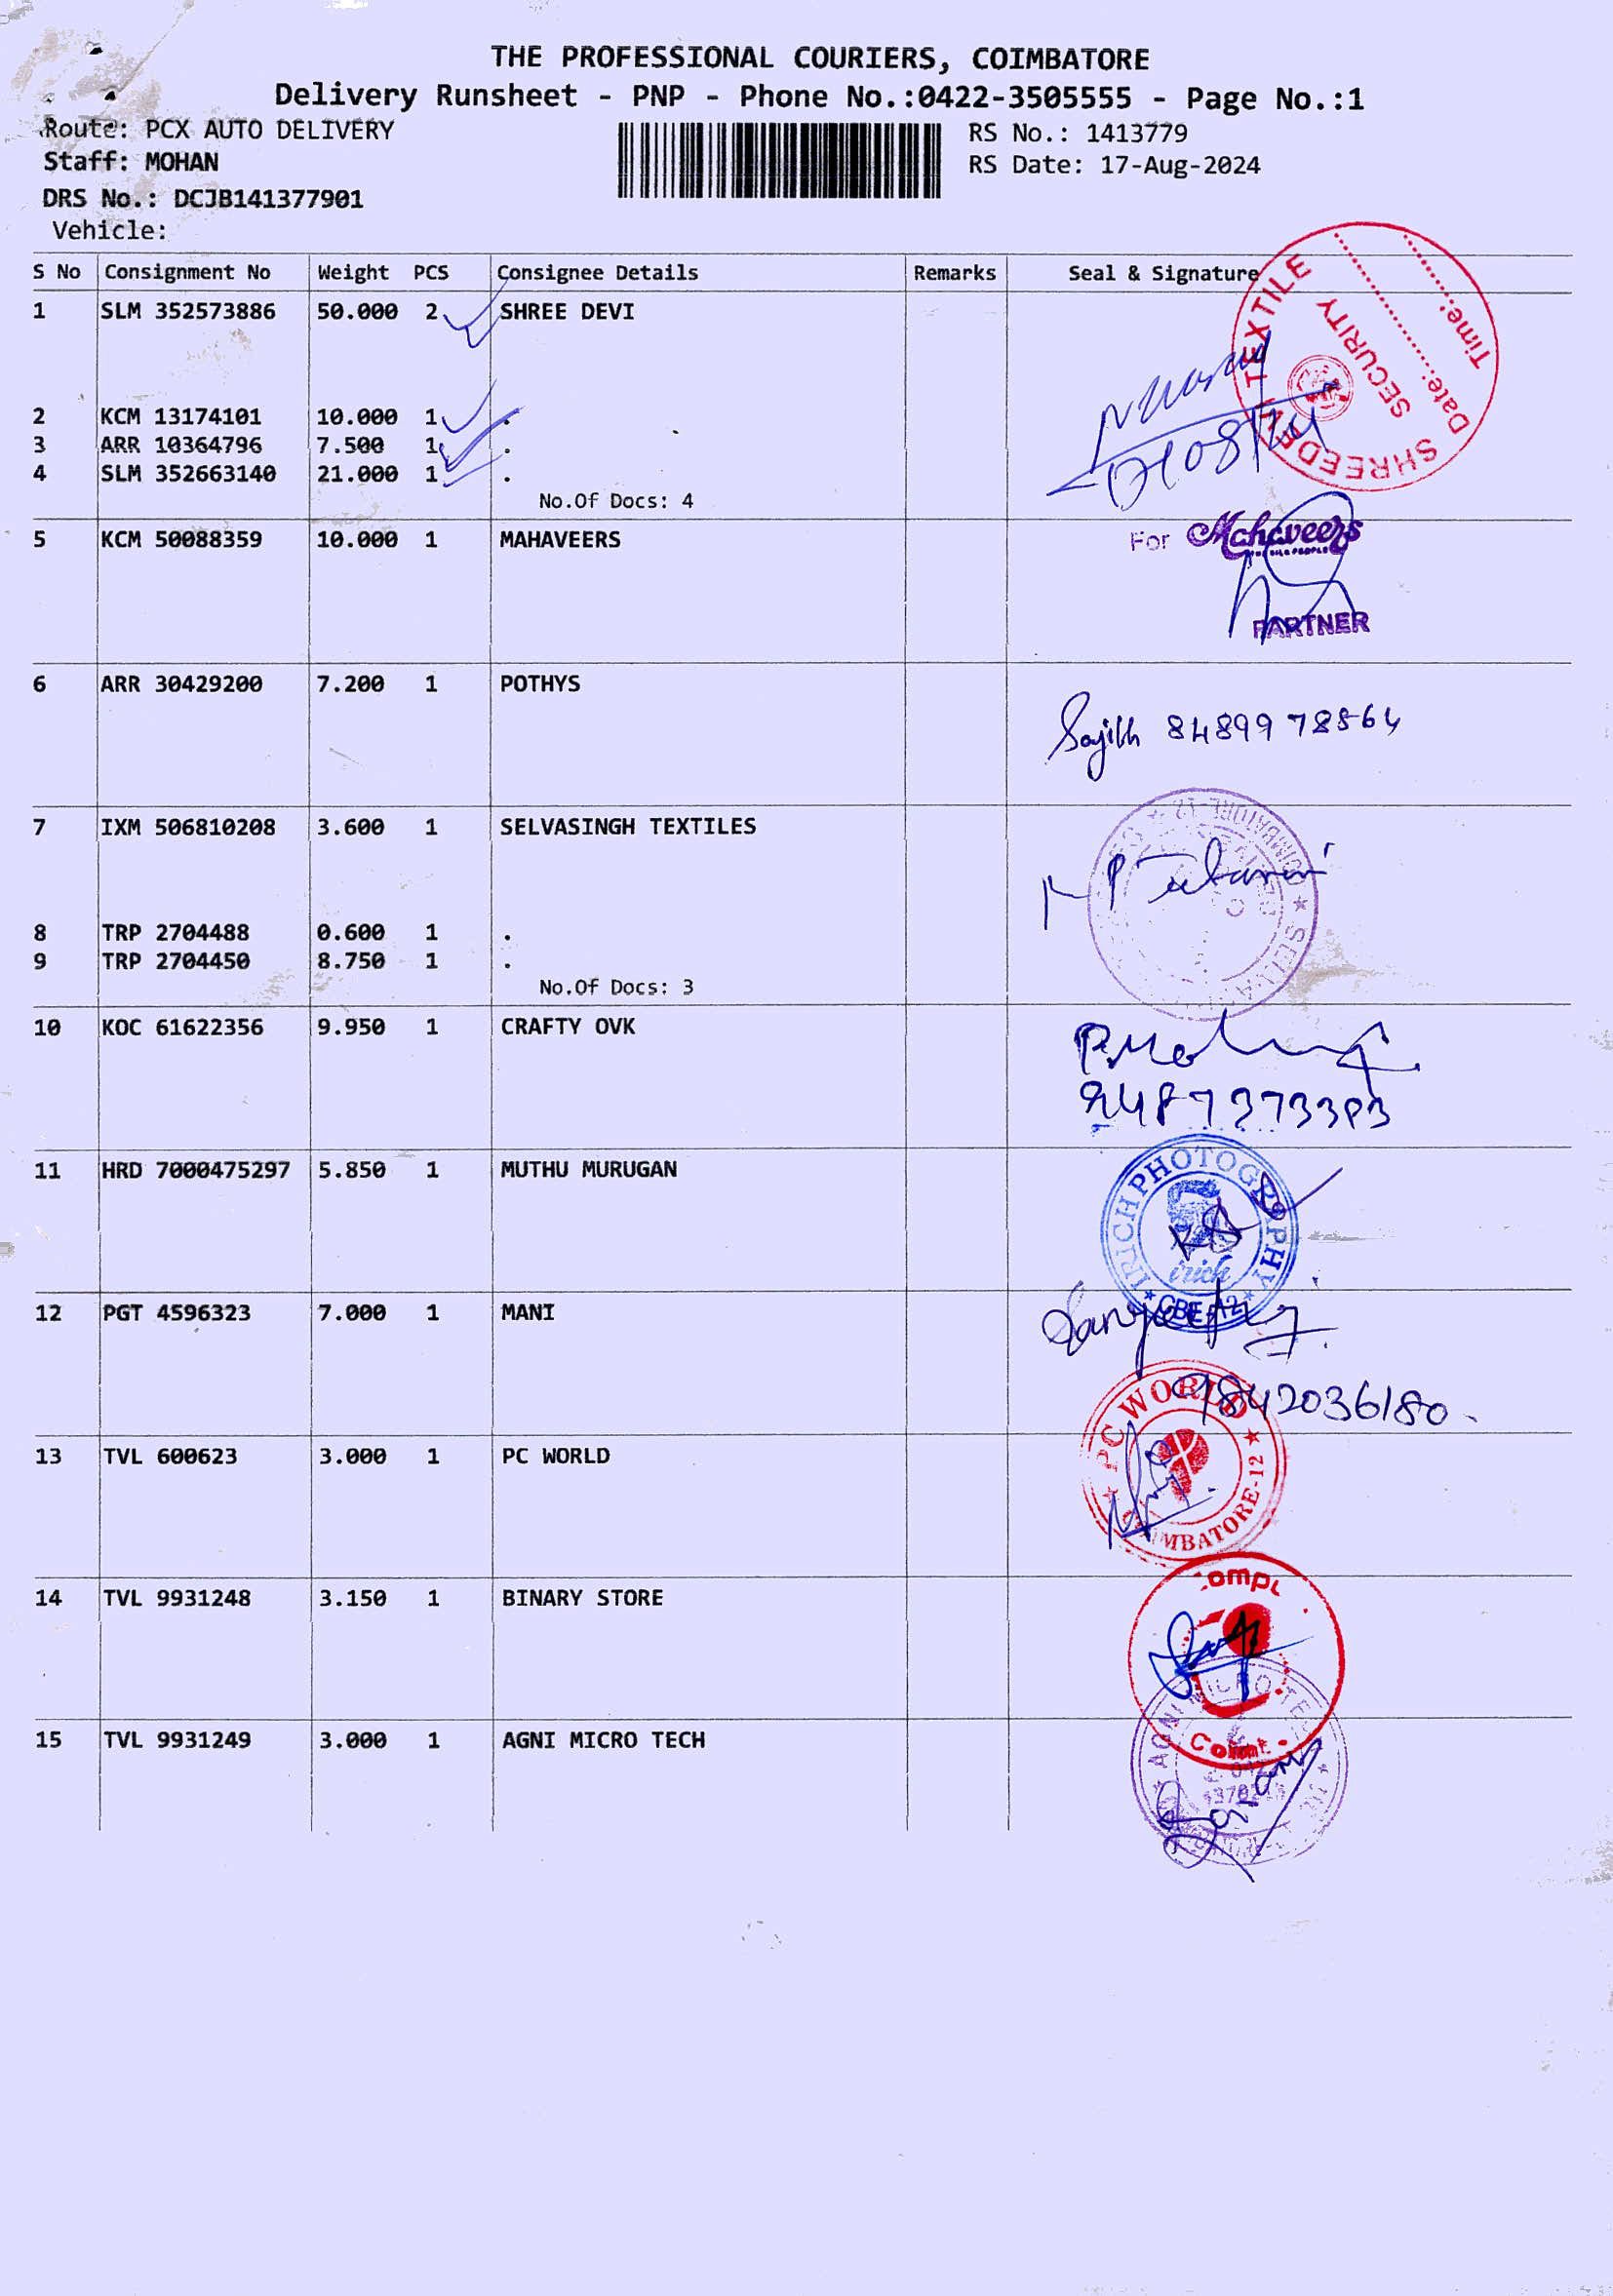 THE PROFESSIONAL COURIERS, COIMBATORE
Delivery Runsheet - PNP - Phone No.:0422-3505555 - Page No.:1
Route: PCX AUTO DELIVERY
RS No.: 1413779
Staff: MOHAN
RS Date: 17-Aug-2024
DRS No.: DCJB141377901
Vehicle:
S No Consignment No Weight PCS Consignee Details Remarks Seal & Signature
1 SLM 352573886 50.000 2 SHREE DEVI
SHREEDEVI TEXTILE
SECURITY
Date:..............
Time:..............
2 KCM 13174101 10.000 1 .
3 ARR 10364796 7.500 1 .
4 SLM 352663140 21.000 1 .
No.Of Docs: 4
5 KCM 50088359 10.000 1 MAHAVEERS
For Mahaveers
PARTNER
6 ARR 30429200 7.200 1 POTHYS
8489978564
7 IXM 506810208 3.600 1 SELVASINGH TEXTILES
8 TRP 2704488 0.600 1 .
9 TRP 2704450 8.750 1 .
No.Of Docs: 3
10 KOC 61622356 9.950 1 CRAFTY OVK
11 HRD 7000475297 5.850 1 MUTHU MURUGAN
IRICH PHOTOGRAPHY
irich
★ CBE-12 ★
12 PGT 4596323 7.000 1 MANI
9842036180
13 TVL 600623 3.000 1 PC WORLD
★ PC WORLD ★
COIMBATORE-12
14 TVL 9931248 3.150 1 BINARY STORE
15 TVL 9931249 3.000 1 AGNI MICRO TECH
AGNI MICRO TECH